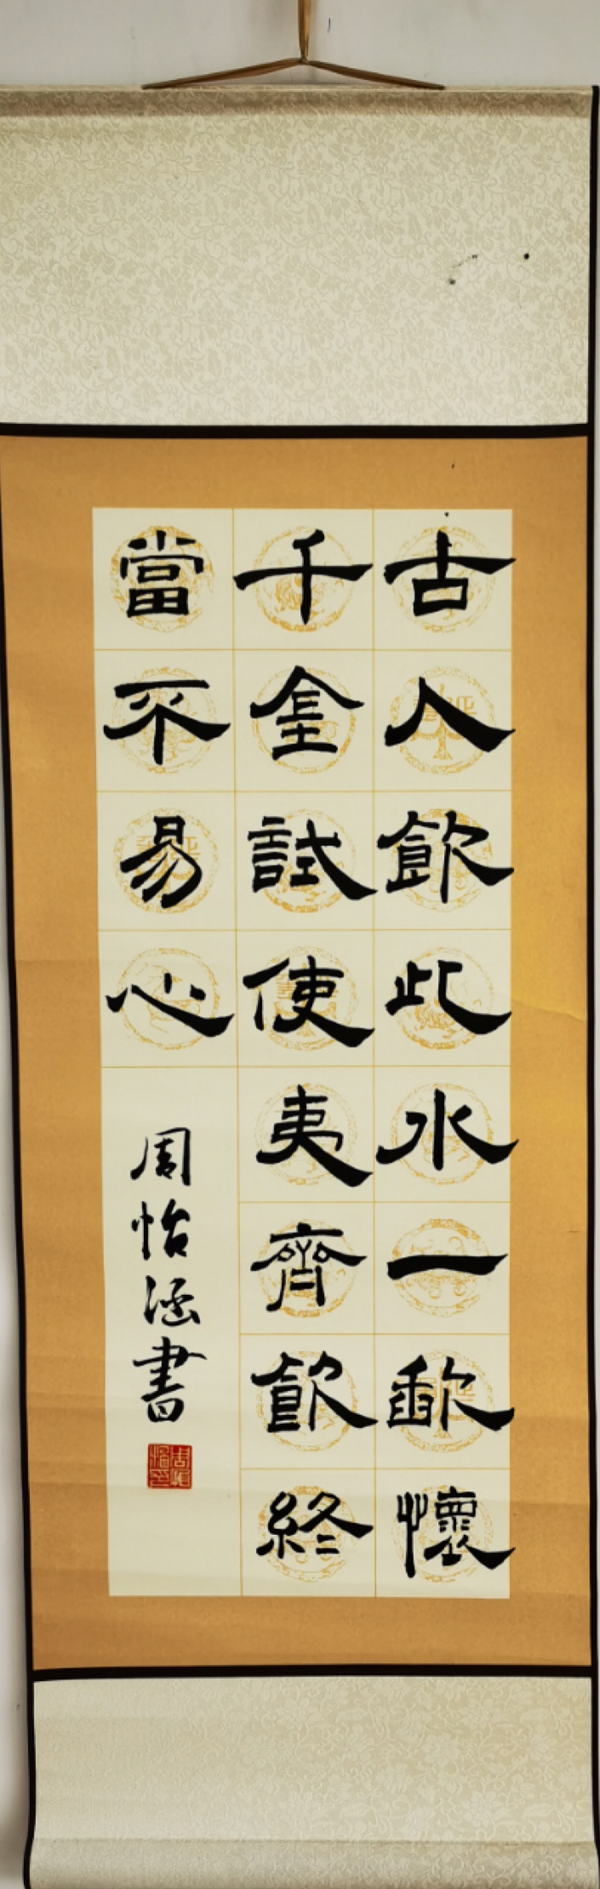 古人飲此水一歃懷
千金試使夷齊飲終
當不易心
周怡涵書